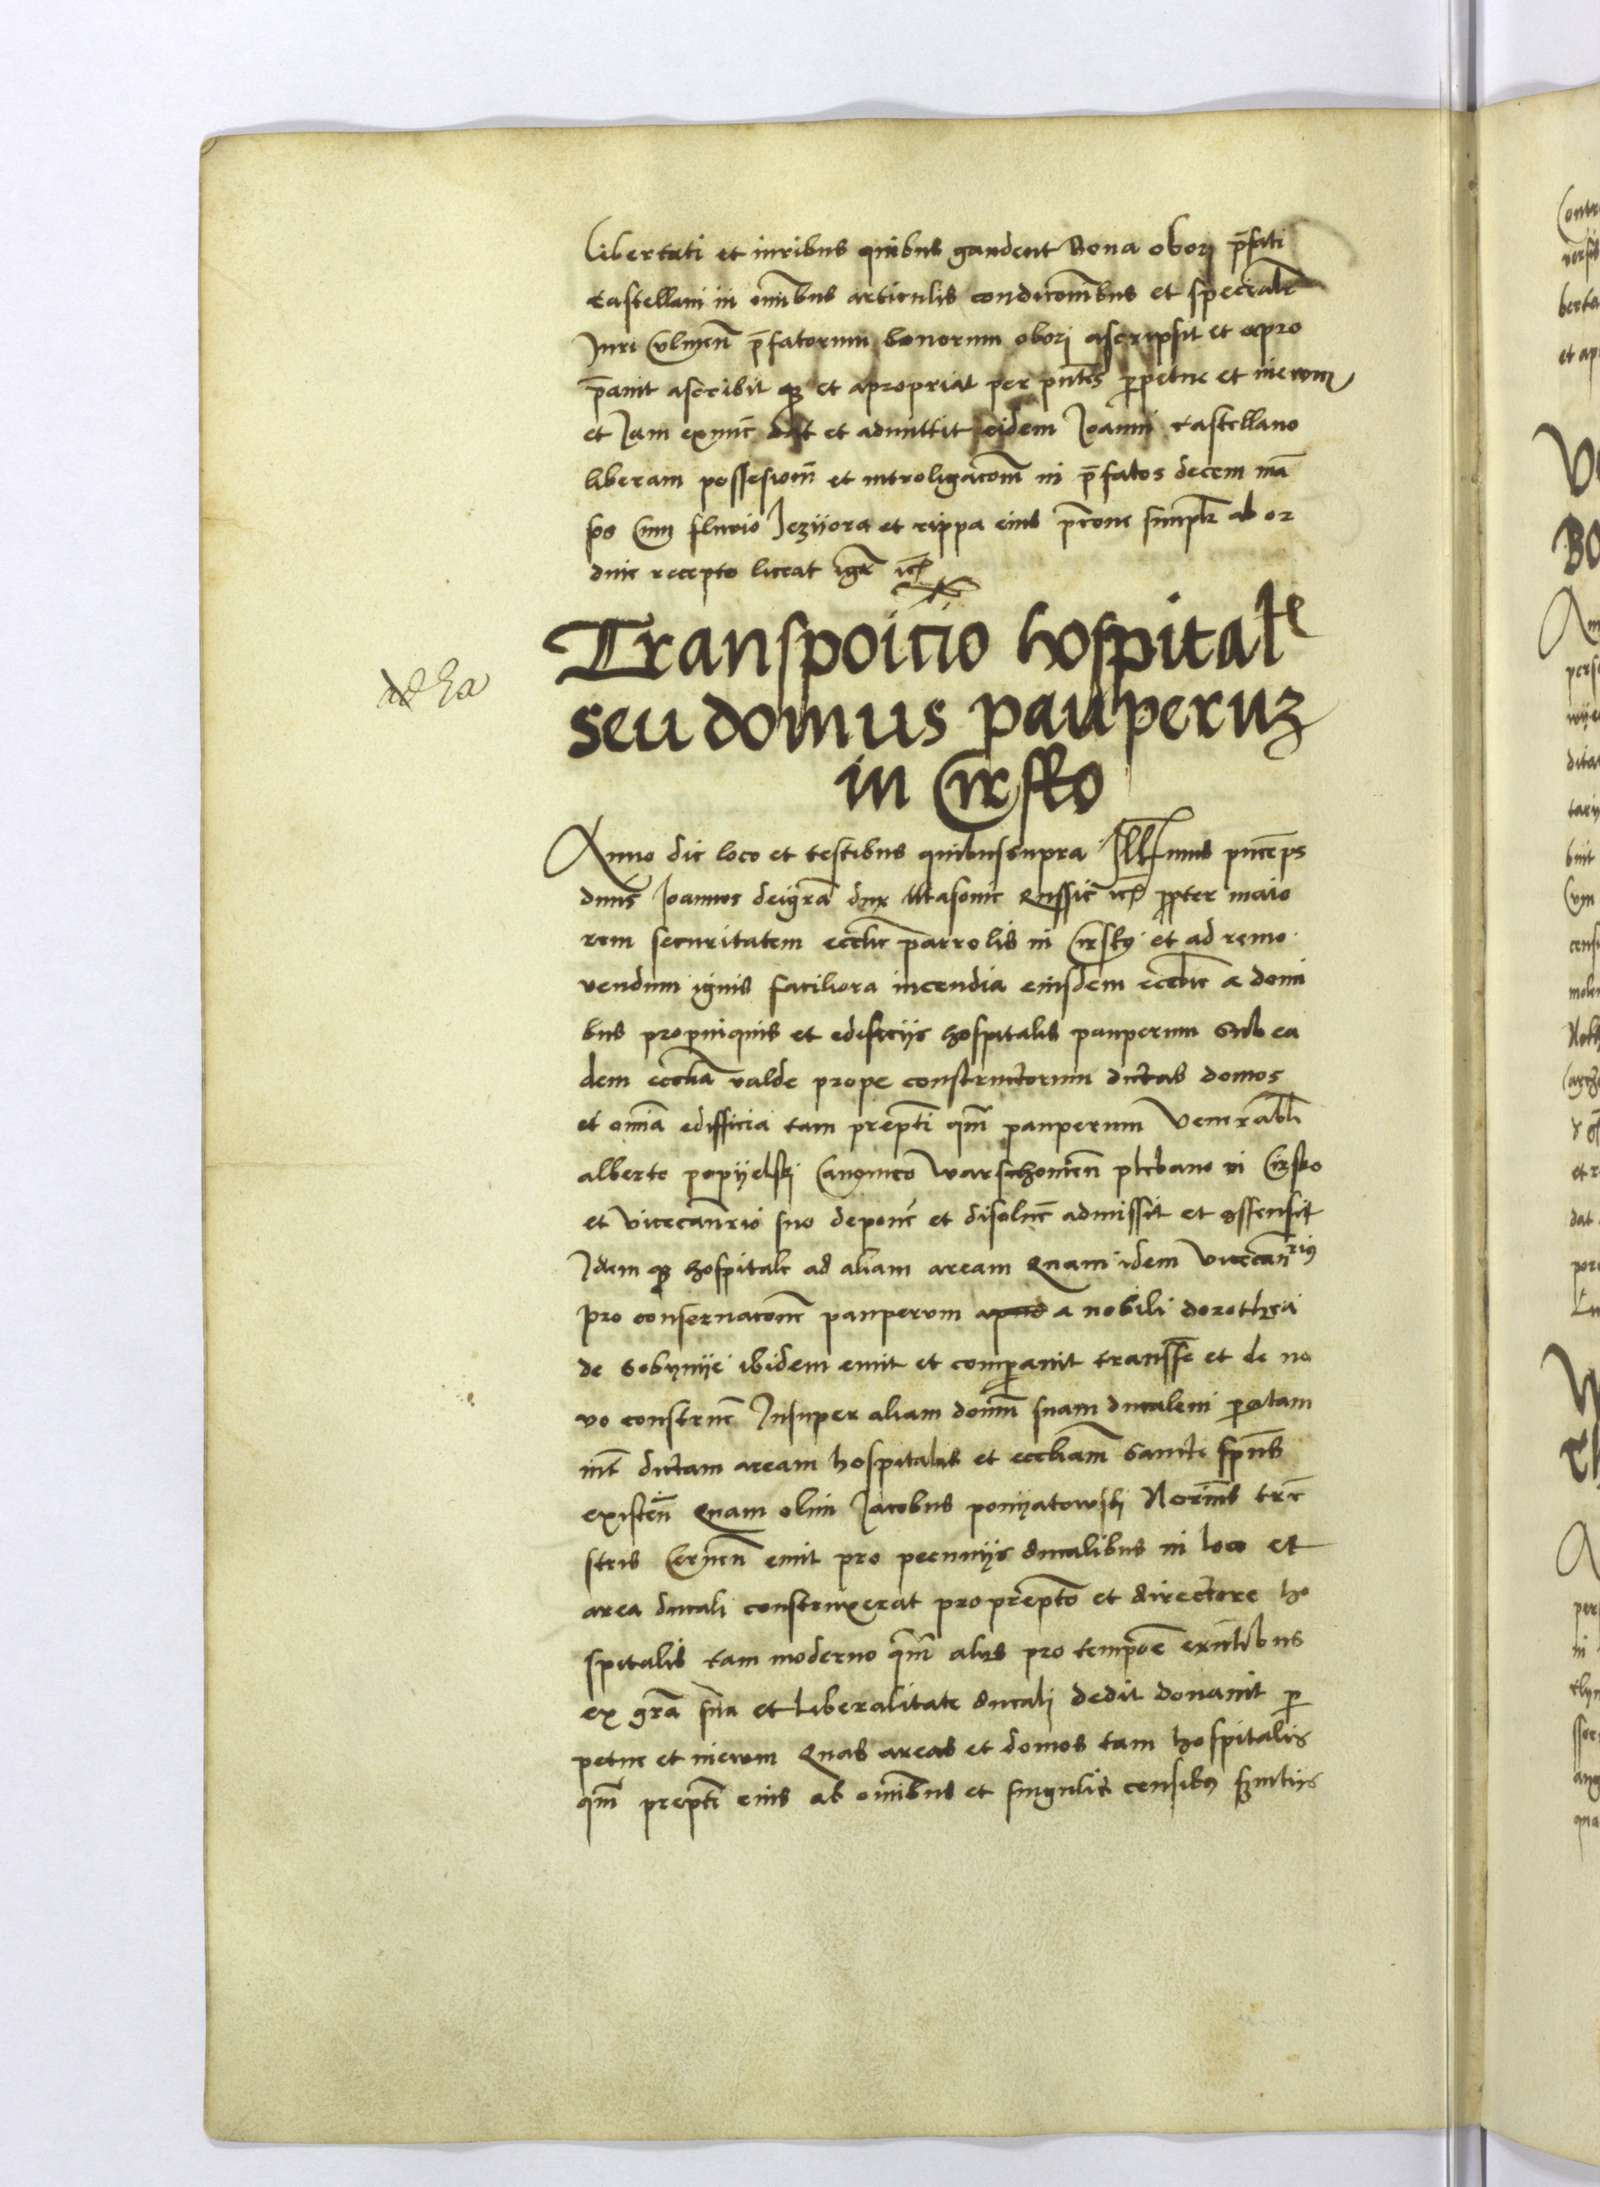 libertati et iuribus quibus gaudent Bona obori p̄fati
castellani in om̄ibus articulis condicōnibus et speciaľr
Juri Culmen̄ p̄fatorum bonorum obori ascripsit et apro
p̄auit ascribit qz et apropriat per pn̄tes ꝑpetue et in ewm
et Jam exnūc dat et admittit eidem Joanni castellano
liberam possesiom̄ et introligacōm̄ in p̄fatos decem mā
sos Cum fluvio Jezijora et rippa eius ab or
dine recepto liceat iḡr ic̄
Transpoicio hospitale
seu domus pauperuz
in Cirsko
Anno die loco et testibus quibussupra Ill mus pn̄ceps
dn̄us Joannes deigrā dux Masouie Russie ic̄ ꝓpter maio
rem securitatem ecclie parrolis in Cirsky et ad remo
vendum ignis faciliora incendia eiusdem ecclie a domi
bus propinquis et edificijs hospitalis pauperum Sub ea
dem ecclīa valde prope constructorum dictas domos
et om̄ia edifficia tam prep̄ti qm̄ pauperum Venerabli
alberto popijelski Canonico Warschouien̄ plebano in Cirsko
et vicecan̄rio suo depone et disolue admissit et 9ssensit
Idem qz hospitale ad aliam aream Quam idem Vicecan̄rius
pro conseruacōne pauperum a nobili dorothea
de Sobynije ibidem emit et comparauit transf̄e et de no
vo construe Insuper aliam domū suam ducalem
int̄ dictam aream hospitalis et eccliam̄ Sancti spūs
existen̄ Quam olim Jacobus ponijatowski Nor̄ius terre
stris Cernen̄ emit pro pecunijs ducalibus in loco et
area ducali construxerat pro prep̄to et directore ho
spitalis tam moderno qm̄ alijs pro tempoē exn̄tibus
ex grā sua et liberalitate ducali dedit donauit ꝑ
petue et in ewm Quas areas et domos tam hospitalis
qm̄ prep̄ti eius ab om̄ibus et singulis censibus